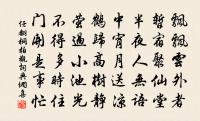 飄飄雲外者
暫宿聚仙堂
半夜人無語
中宵月送涼
鶴歸高樹靜
螢過小池光
不得多時住
門開是事忙
任翻桐柏觀詞典網